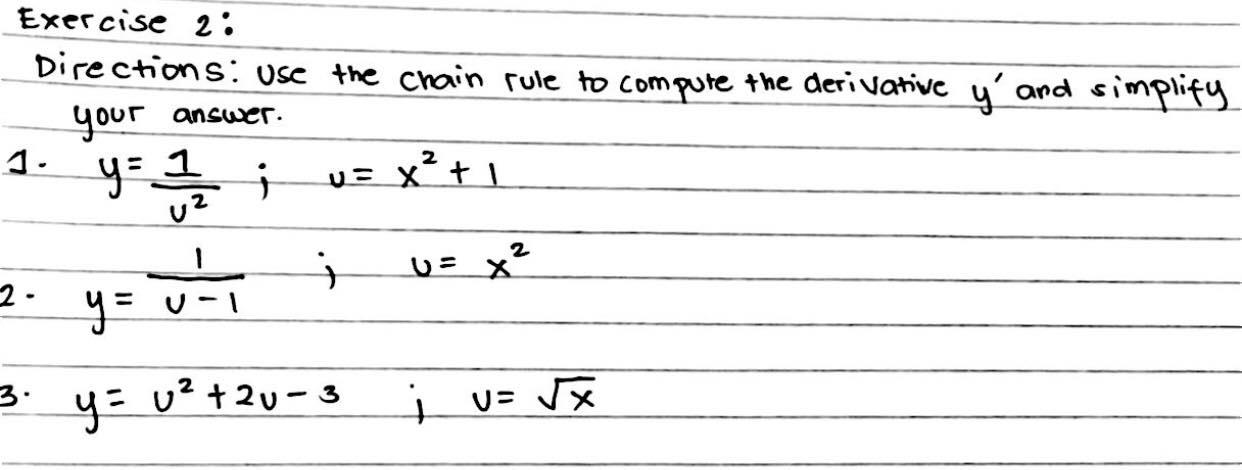 Exercise 2:
Directions: Use the chain rule to compute the derivative y' and simplify
your answer.
1. y = 1/u² ; u = x² + 1
2. y = 1/(u - 1) ; u = x²
3. y = u² + 2u - 3 ; u = √x